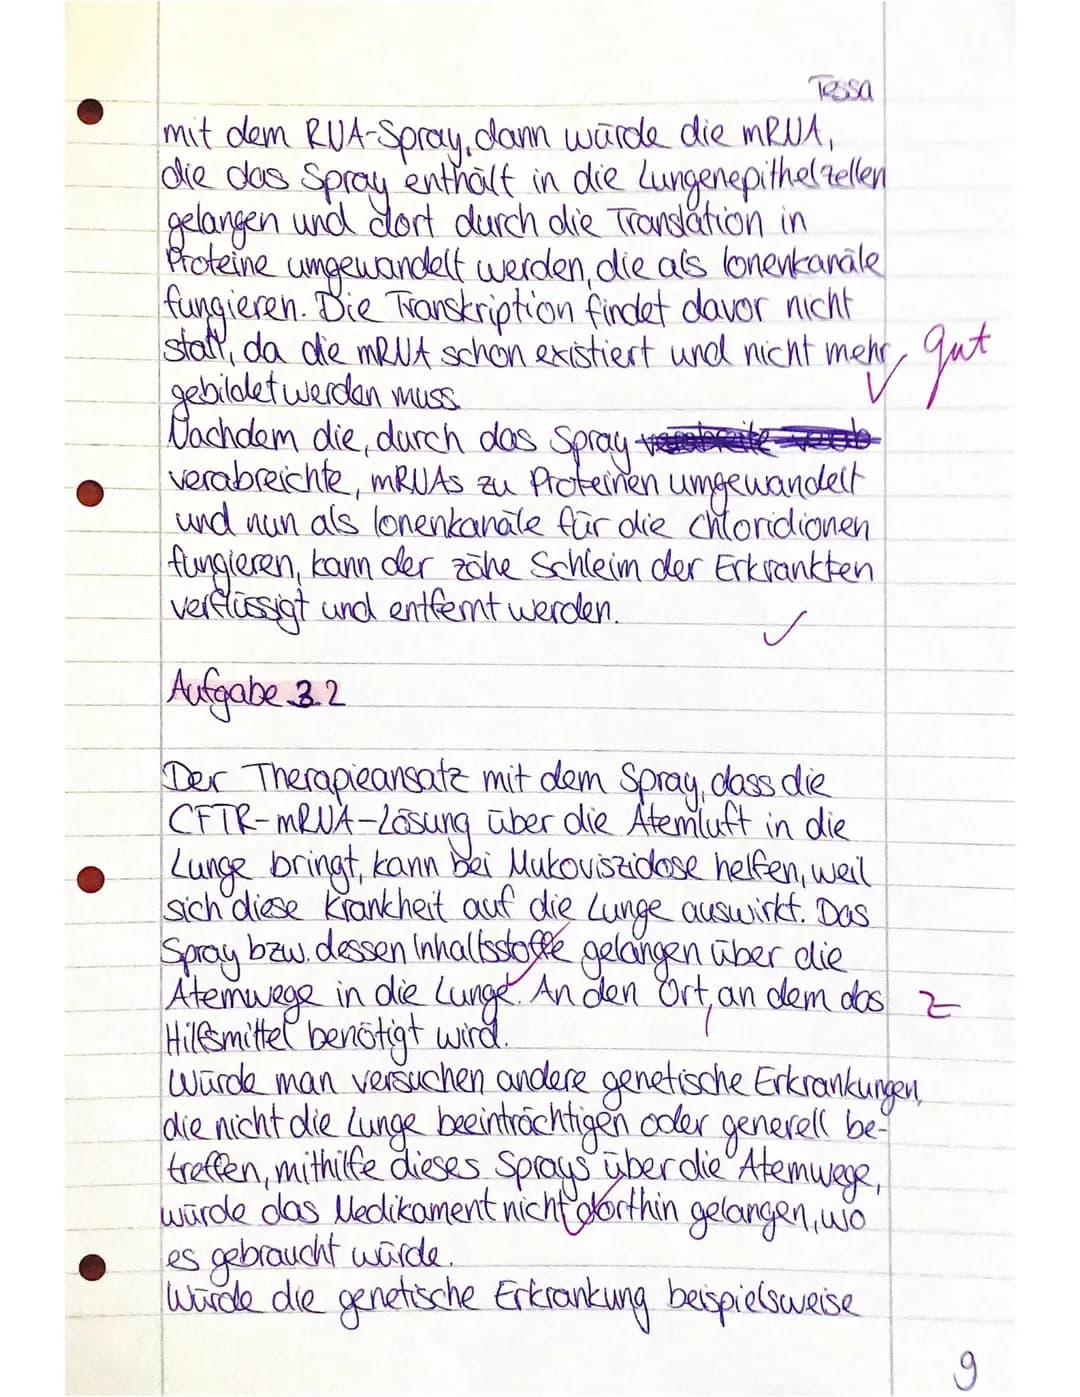 Tessa
mit dem RNA-Spray, dann würde die mRNA,
die das Spray enthält in die Lungenepithelzellen
gelangen und dort durch die Translation in
Proteine umgewandelt werden, die als Ionenkanäle
fungieren. Die Transkription findet davor nicht
statt, da die mRNA schon existiert und nicht mehr gut
gebildet werden muss.
Nachdem die, durch das Spray
verabreichte, mRNAs zu Proteinen umgewandelt
und nun als Ionenkanäle für die Chloridionen
fungieren, kann der zähe Schleim der Erkrankten
verflüssigt und entfernt werden.
Aufgabe 3.2
Der Therapieansatz mit dem Spray, dass die
CFTR-mRNA-Lösung über die Atemluft in die
Lunge bringt, kann bei Mukoviszidose helfen, weil
sich diese Krankheit auf die Lunge auswirkt. Das
Spray bzw. dessen Inhaltsstoffe gelangen über die
Atemwege in die Lunge. An den Ort, an dem das
Hilfsmittel benötigt wird.
Würde man versuchen andere genetische Erkrankungen,
die nicht die Lunge beeinträchtigen oder generell be-
treffen, mithilfe dieses Sprays über die Atemwege,
würde das Medikament nicht dorthin gelangen, wo
es gebraucht würde.
Würde die genetische Erkrankung beispielsweise
9